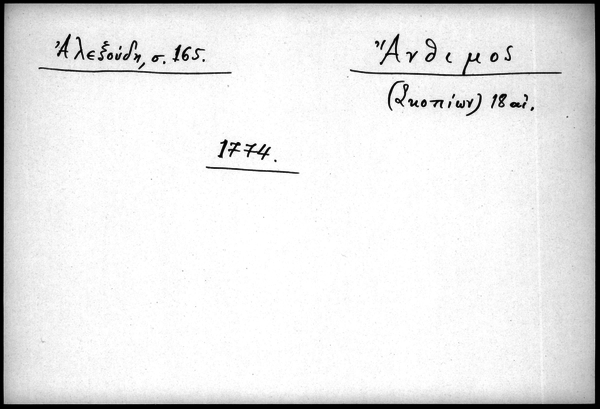 Ἀλεξούδη, σ. 165.
Ἄνθιμος
(Σκοπίων) 18 αἰ.
1774.